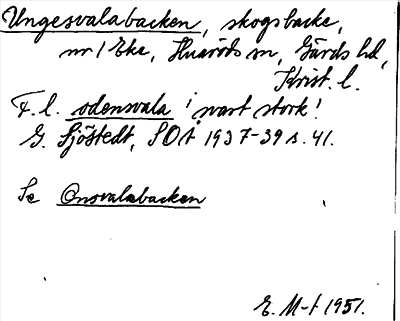 Ungesvalabacken, skogsbacke,
nr 1 Eke, Huaröds sn, Gärds hd,
Krist. l.
F. l. odensvala 'svart stork'.
G. Sjöstedt, SOÅ 1937-39 s. 41.
Se Onsvalabacken
E. M-t 1951.